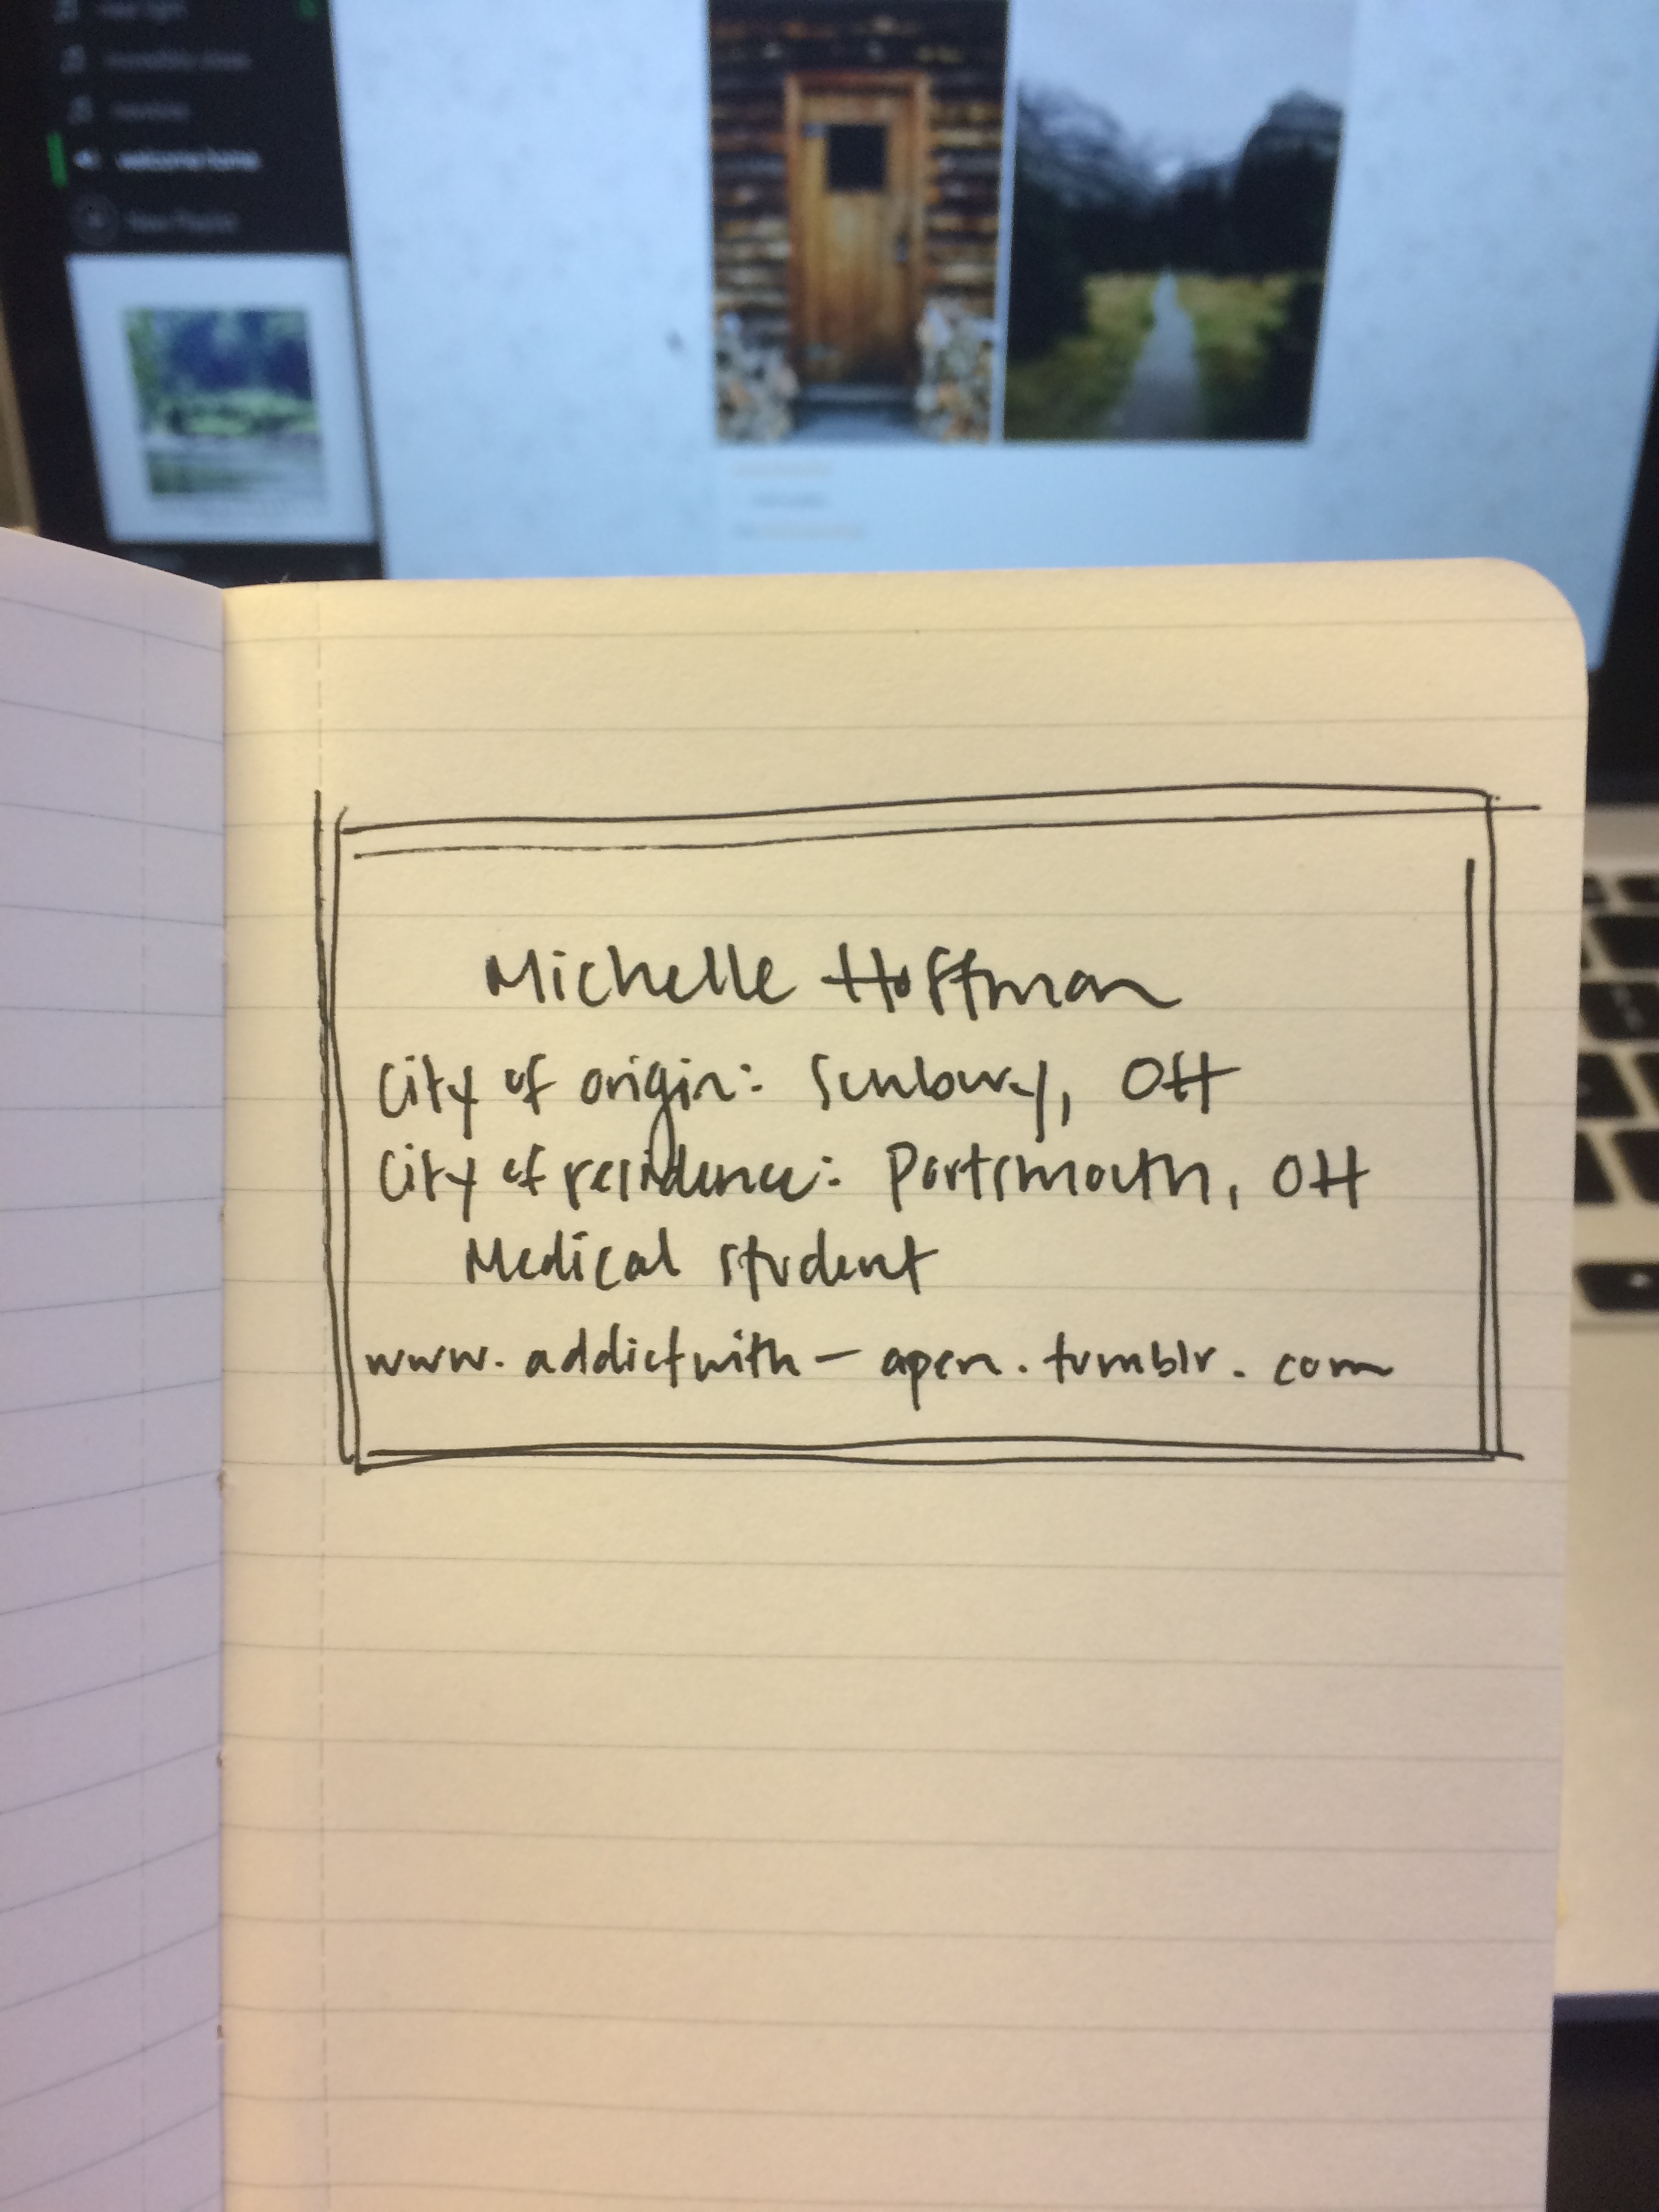 welcome home
New Playlist
Michelle Hoffman
City of origin: Sunbury, OH
City of residence: Portsmouth, OH
Medical student
www.addictwith-apen.tumblr.com